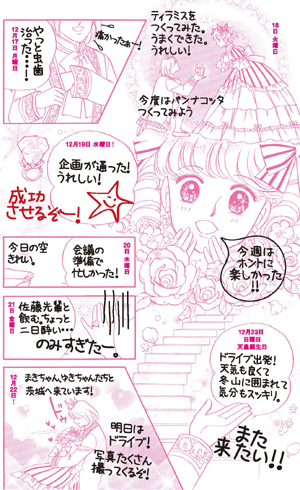 12月17日 月曜日
やっと虫歯
治った…！
痛かったぁー！
18日 火曜日
ティラミスを
つくってみた。
うまくできた。
うれしい！
今度はパンナコッタ
つくってみよう
12月19日 水曜日！
企画が通った！
うれしい！
成功
させるぞー！
20日 木曜日
会議の
準備で
忙しかった！
今日の空
きれい。
21日 金曜日
佐藤先輩と
飲む。ちょっと
二日酔い…
のみすぎたー。
12月22日！
まきちゃん、ゆきちゃんたちと
茨城へ来ています！
明日は
ドライブ！
写真たくさん
撮ってくるぞ！
今週は
ホントに
楽しかった！！
12月23日
日曜日
天皇誕生日
ドライブ出発！
天気も良くて
冬山に囲まれて
気分もスッキリ。
また
来たい！！